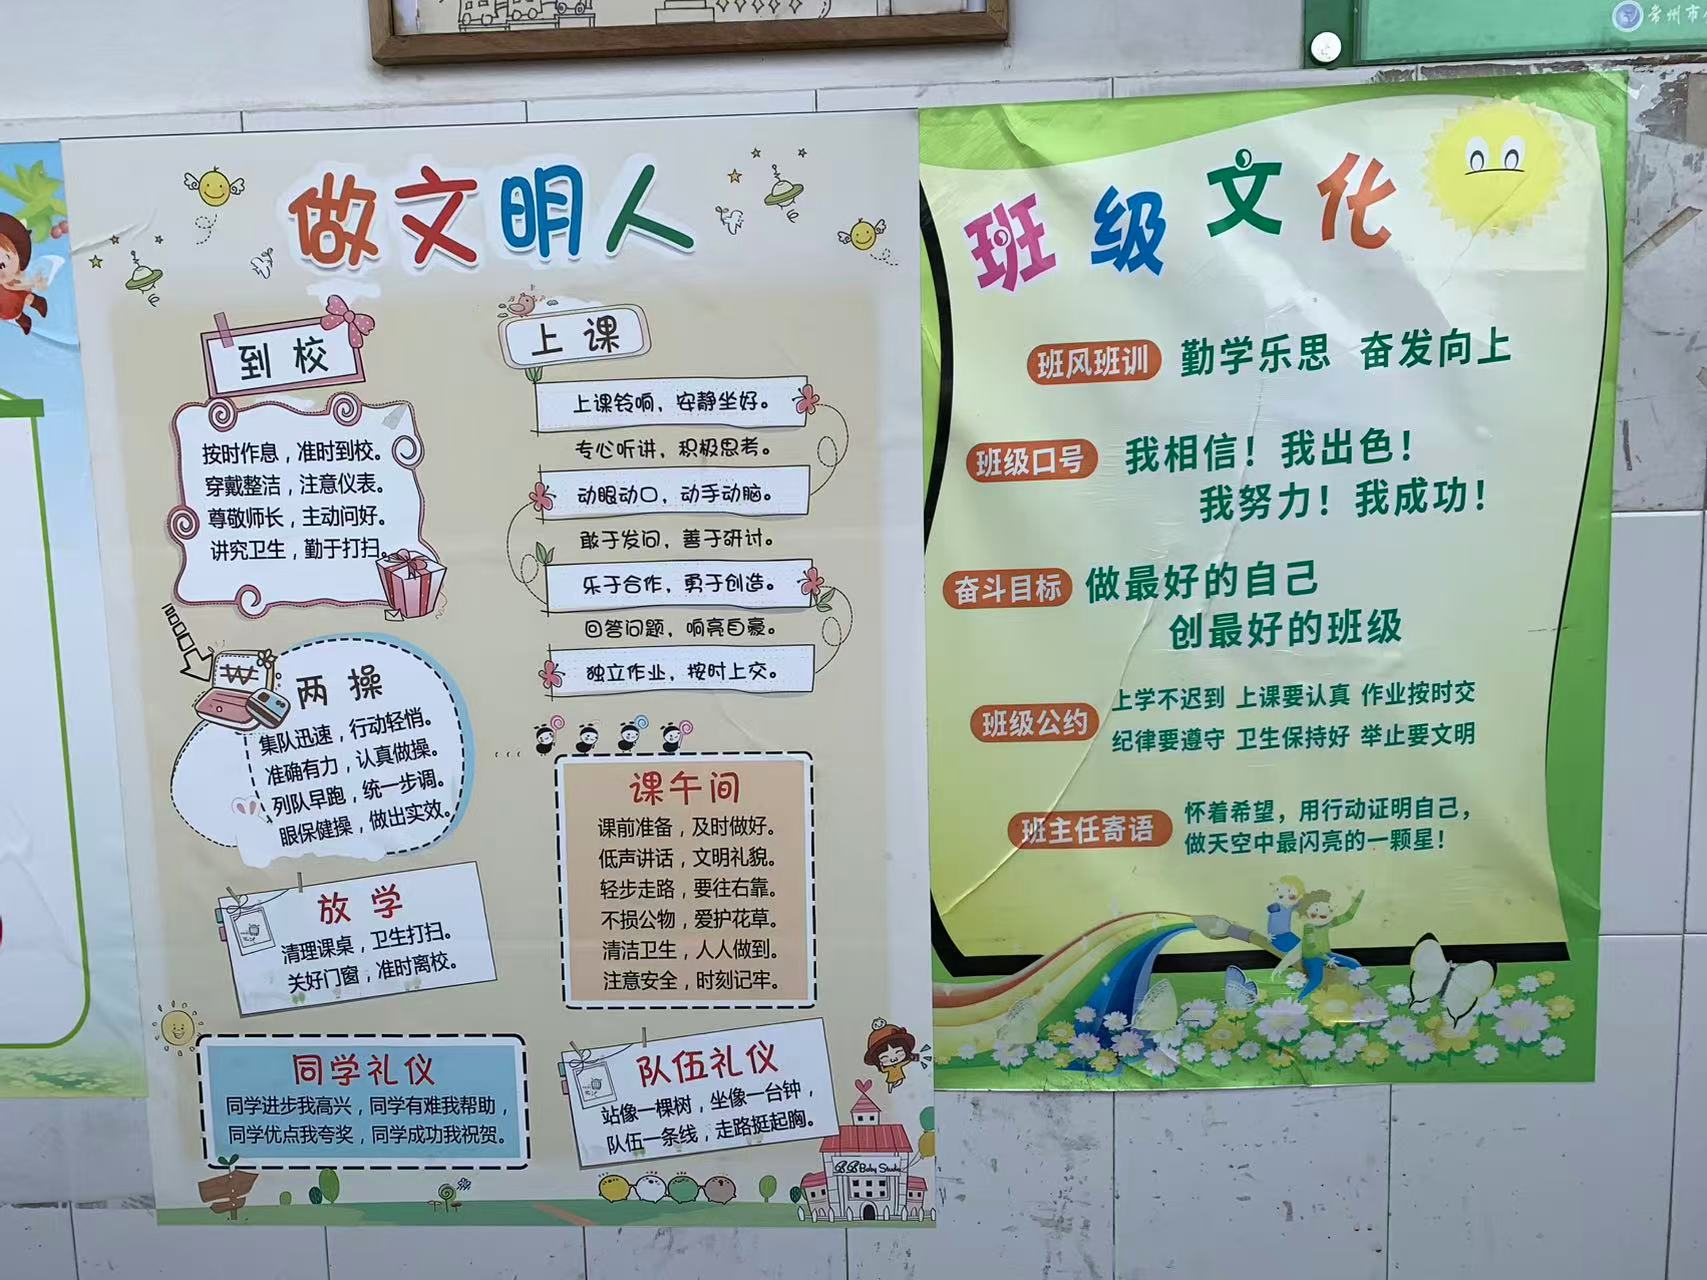 常州市
做文明人
到校
按时作息，准时到校。
穿戴整洁，注意仪表。
尊敬师长，主动问好。
讲究卫生，勤于打扫。
两操
集队迅速，行动轻悄。
准确有力，认真做操。
列队早跑，统一步调。
眼保健操，做出实效。
放学
清理课桌，卫生打扫。
关好门窗，准时离校。
同学礼仪
同学进步我高兴，同学有难我帮助，
同学优点我夸奖，同学成功我祝贺。
上课
上课铃响，安静坐好。
专心听讲，积极思考。
动眼动口，动手动脑。
敢于发问，善于研讨。
乐于合作，勇于创造。
回答问题，响亮自豪。
独立作业，按时上交。
课午间
课前准备，及时做好。
低声讲话，文明礼貌。
轻步走路，要往右靠。
不损公物，爱护花草。
清洁卫生，人人做到。
注意安全，时刻记牢。
队伍礼仪
站像一棵树，坐像一台钟，
队伍一条线，走路挺起胸。
Baby Studio
班级文化
班风班训 勤学乐思 奋发向上
班级口号 我相信！我出色！
我努力！我成功！
奋斗目标 做最好的自己
创最好的班级
班级公约 上学不迟到 上课要认真 作业按时交
纪律要遵守 卫生保持好 举止要文明
班主任寄语 怀着希望，用行动证明自己，
做天空中最闪亮的一颗星！